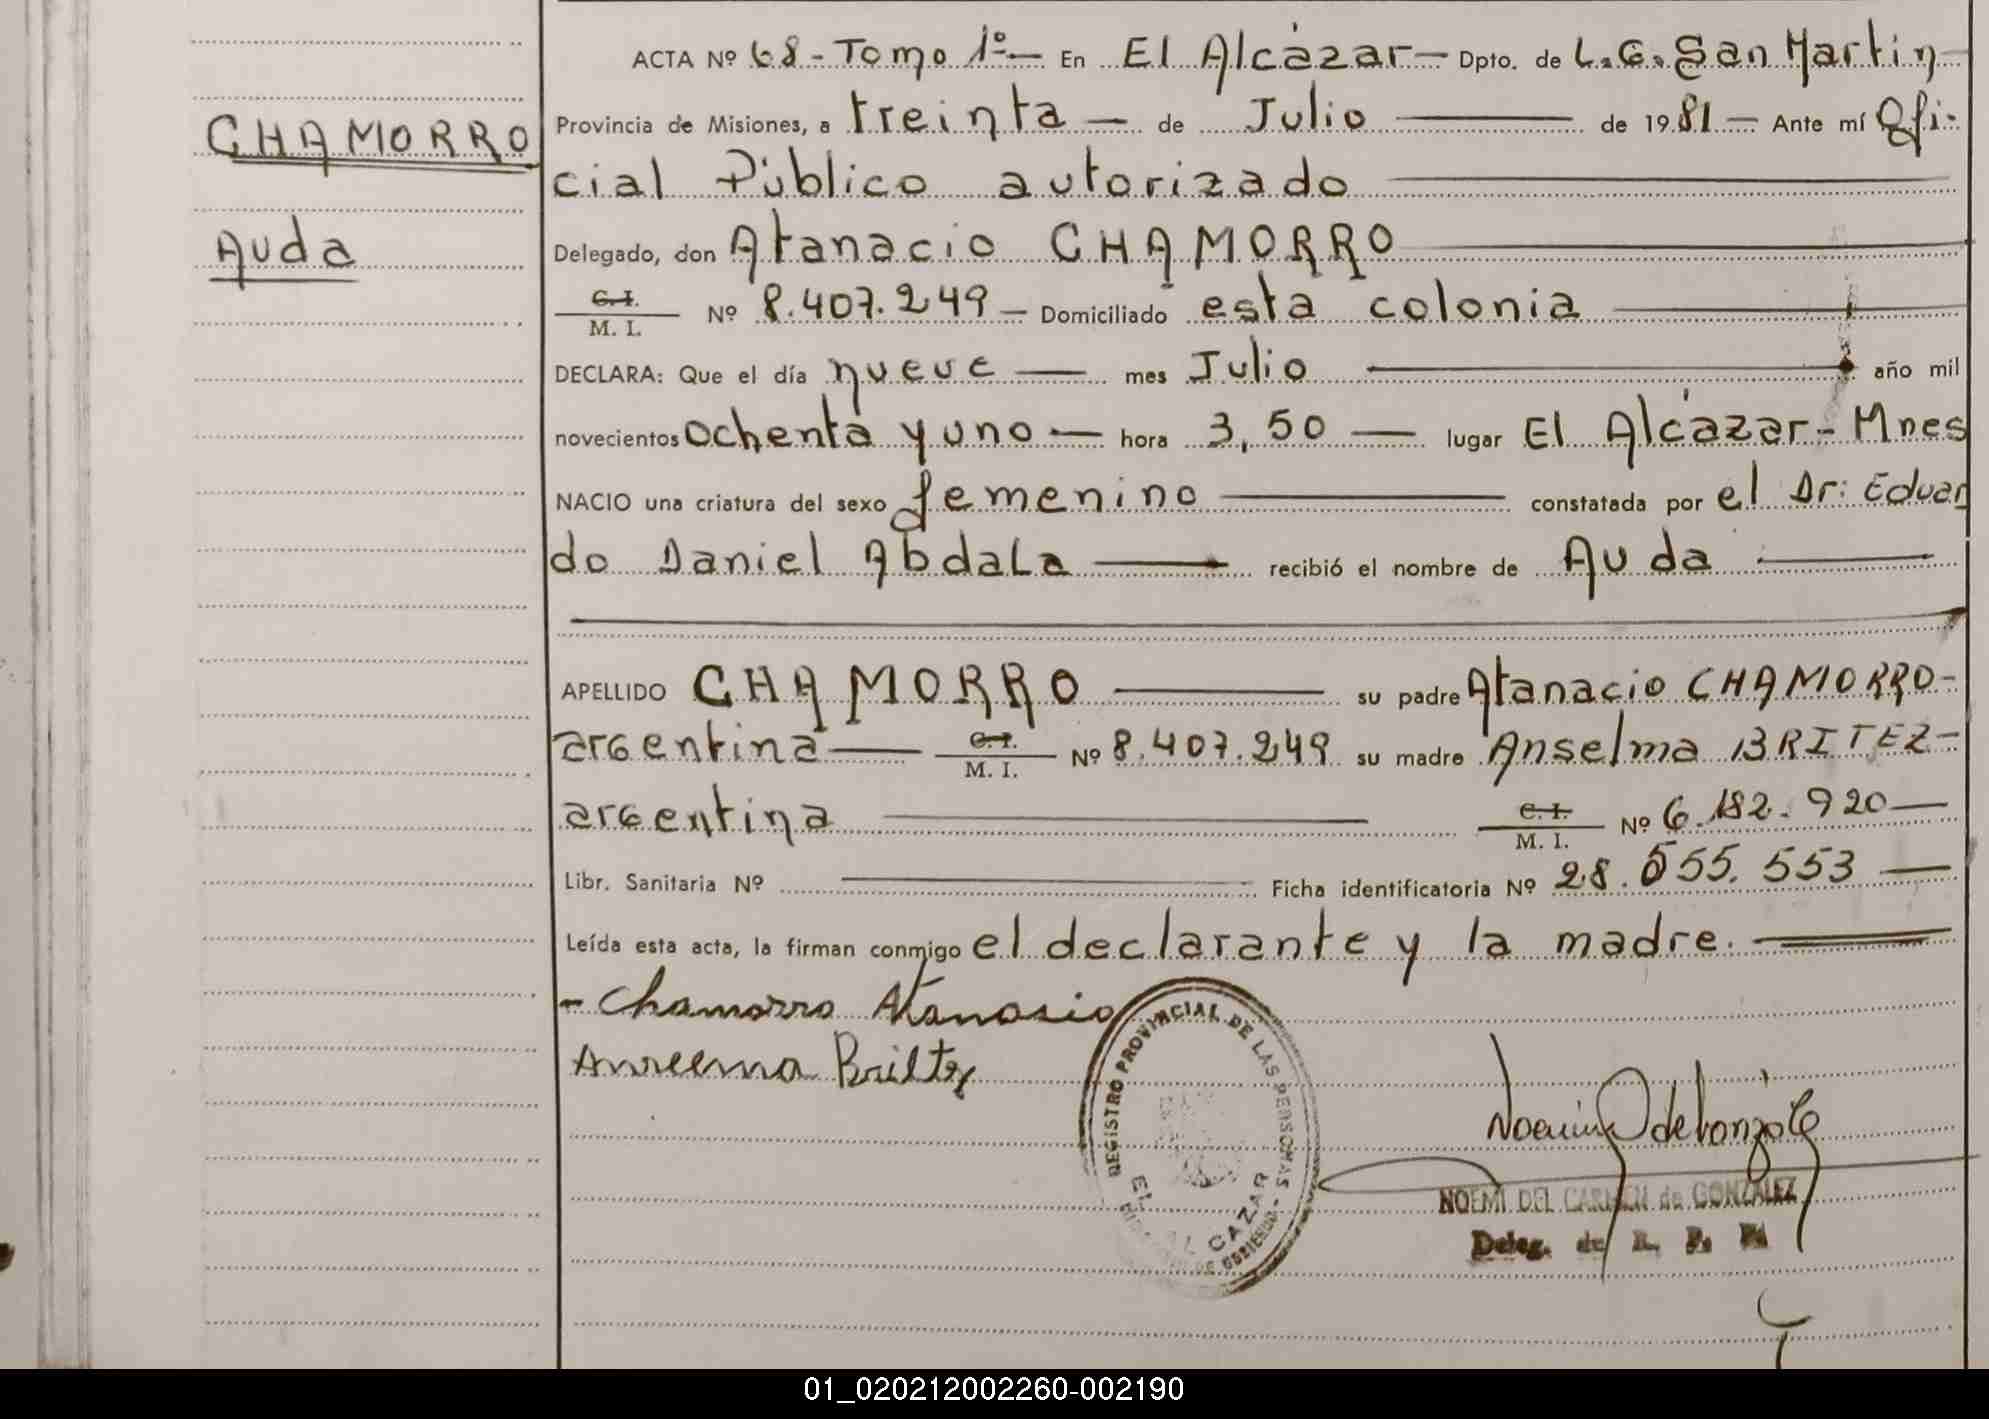 ACTA Nº 68 - Tomo 1º — En El Alcázar — Dpto. de L. G. San Martin
CHAMORRO
Provincia de Misiones, a treinta — de Julio — de 1981 — Ante mí Ofi-
cial Público autorizado
Auda
Delegado, don Atanacio CHAMORRO
C. I.
M. I. Nº 8.407.249 — Domiciliado esta colonia
DECLARA: Que el día nueve — mes Julio — año mil
novecientos ochenta y uno — hora 3,50 — lugar El Alcázar - Mnes
NACIO una criatura del sexo femenino — constatada por el Dr: Eduar
do Daniel Abdala — recibió el nombre de Auda —
APELLIDO CHAMORRO — su padre Atanacio CHAMORRO -
argentina — C. I.
M. I. Nº 8.407.249 su madre Anselma BRITEZ -
argentina — C. I.
M. I. Nº 6.182.920 —
Libr. Sanitaria Nº — Ficha identificatoria Nº 28.555.553 —
Leída esta acta, la firman conmigo el declarante y la madre.
- Chamorro Atanasio
REGISTRO PROVINCIAL DE LAS PERSONAS
EL ALCAZAR
NOEMI DEL CARMEN de GONZALEZ
Deleg. de R. P. P.
01_020212002260-002190